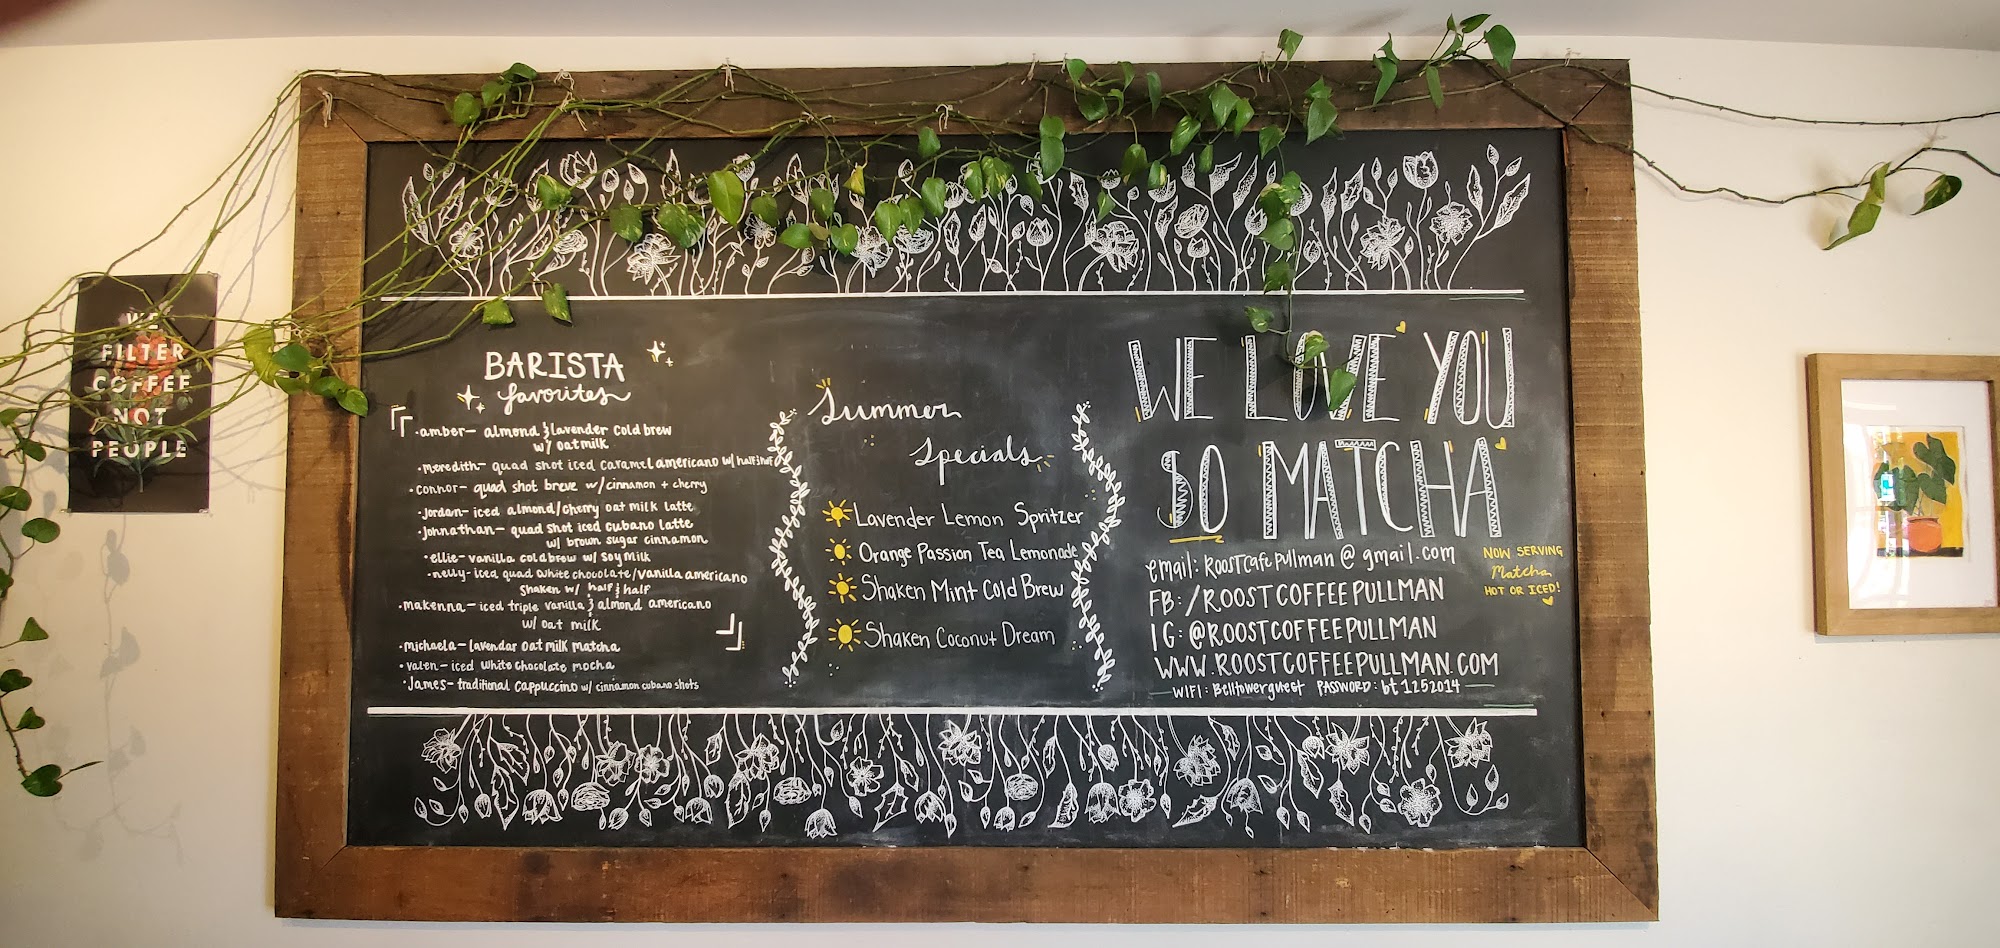 WE
FILTER
COFFEE
NOT
PEOPLE
BARISTA
favorites
·amber- almond & lavender cold brew
w/ oatmilk
·meredith- quad shot iced caramel americano w/ half & half
·connor- quad shot breve w/cinnamon + cherry
·jordan- iced almond/cherry oat milk latte
·johnathan- quad shot iced cubano latte
w/ brown sugar cinnamon
·ellie- vanilla coldbrew w/ soy milk
·nelly- iced quad white chocolate/vanilla americano
shaken w/ half & half
·makenna- iced triple vanilla & almond americano
w/ oat milk
·michaela- lavendar oat milk matcha
·valen- iced white chocolate mocha
·James- traditional cappuccino w/ cinnamon cubano shots
Summer
Specials
Lavender Lemon Spritzer
Orange Passion Tea Lemonade
Shaken Mint Cold Brew
Shaken Coconut Dream
WE LOVE YOU
SO MATCHA
email: Roostcafepullman@gmail.com
FB: /ROOSTCOFFEEPULLMAN
IG: @ROOSTCOFFEEPULLMAN
WWW.ROOSTCOFFEEPULLMAN.COM
WIFI: Belltowerguest PASSWORD: bt1252014
NOW SERVING
Matcha
HOT OR ICED!